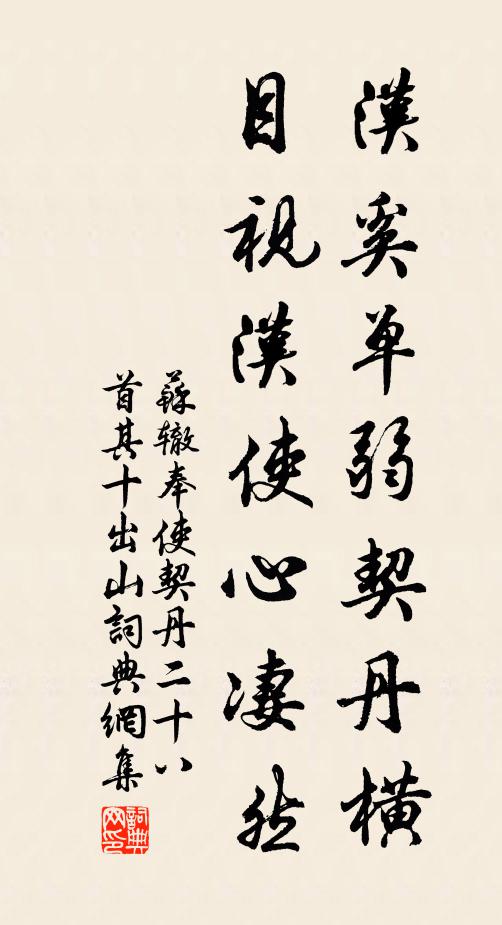 漢奚单弱契丹橫
目視漢使心凄然
蘇辙奉使契丹二十八
首其十出山詞典網集
詞典网印